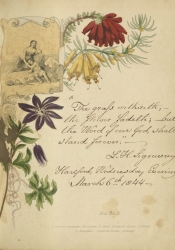 "The grass withereth,
the flower fadeth;—but
the Word of our God shall
stand forever."—
L. H. Sigourney
Hartford, Wednesday Evening
March 6th 1844—